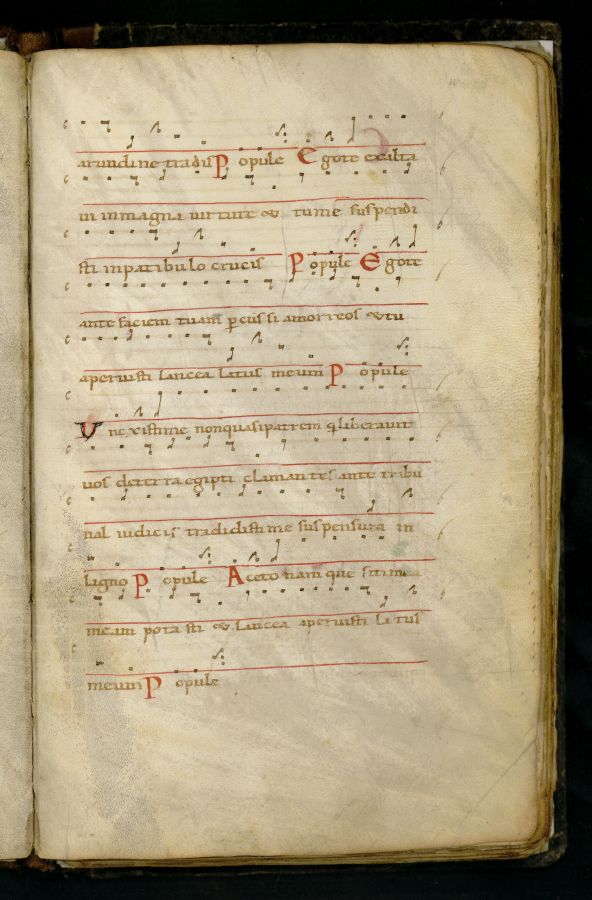 arundine tradis Populε Egote exalta
ui inmagna uirtute & tume suspendi
sti inpatibulo crucis Popule Egote
ante faciem tuam percussi amorreos & tu
aperuisti lancea latus meum Popule
Unexistime nonquasipatrem q liberauit
uos deterra egipti clamantes ante tribu
nal iudicis tradidistime suspensura in
ligno Popule Aceto namque sitim
meam potasti & lancea aperuisti latus
meum Popule